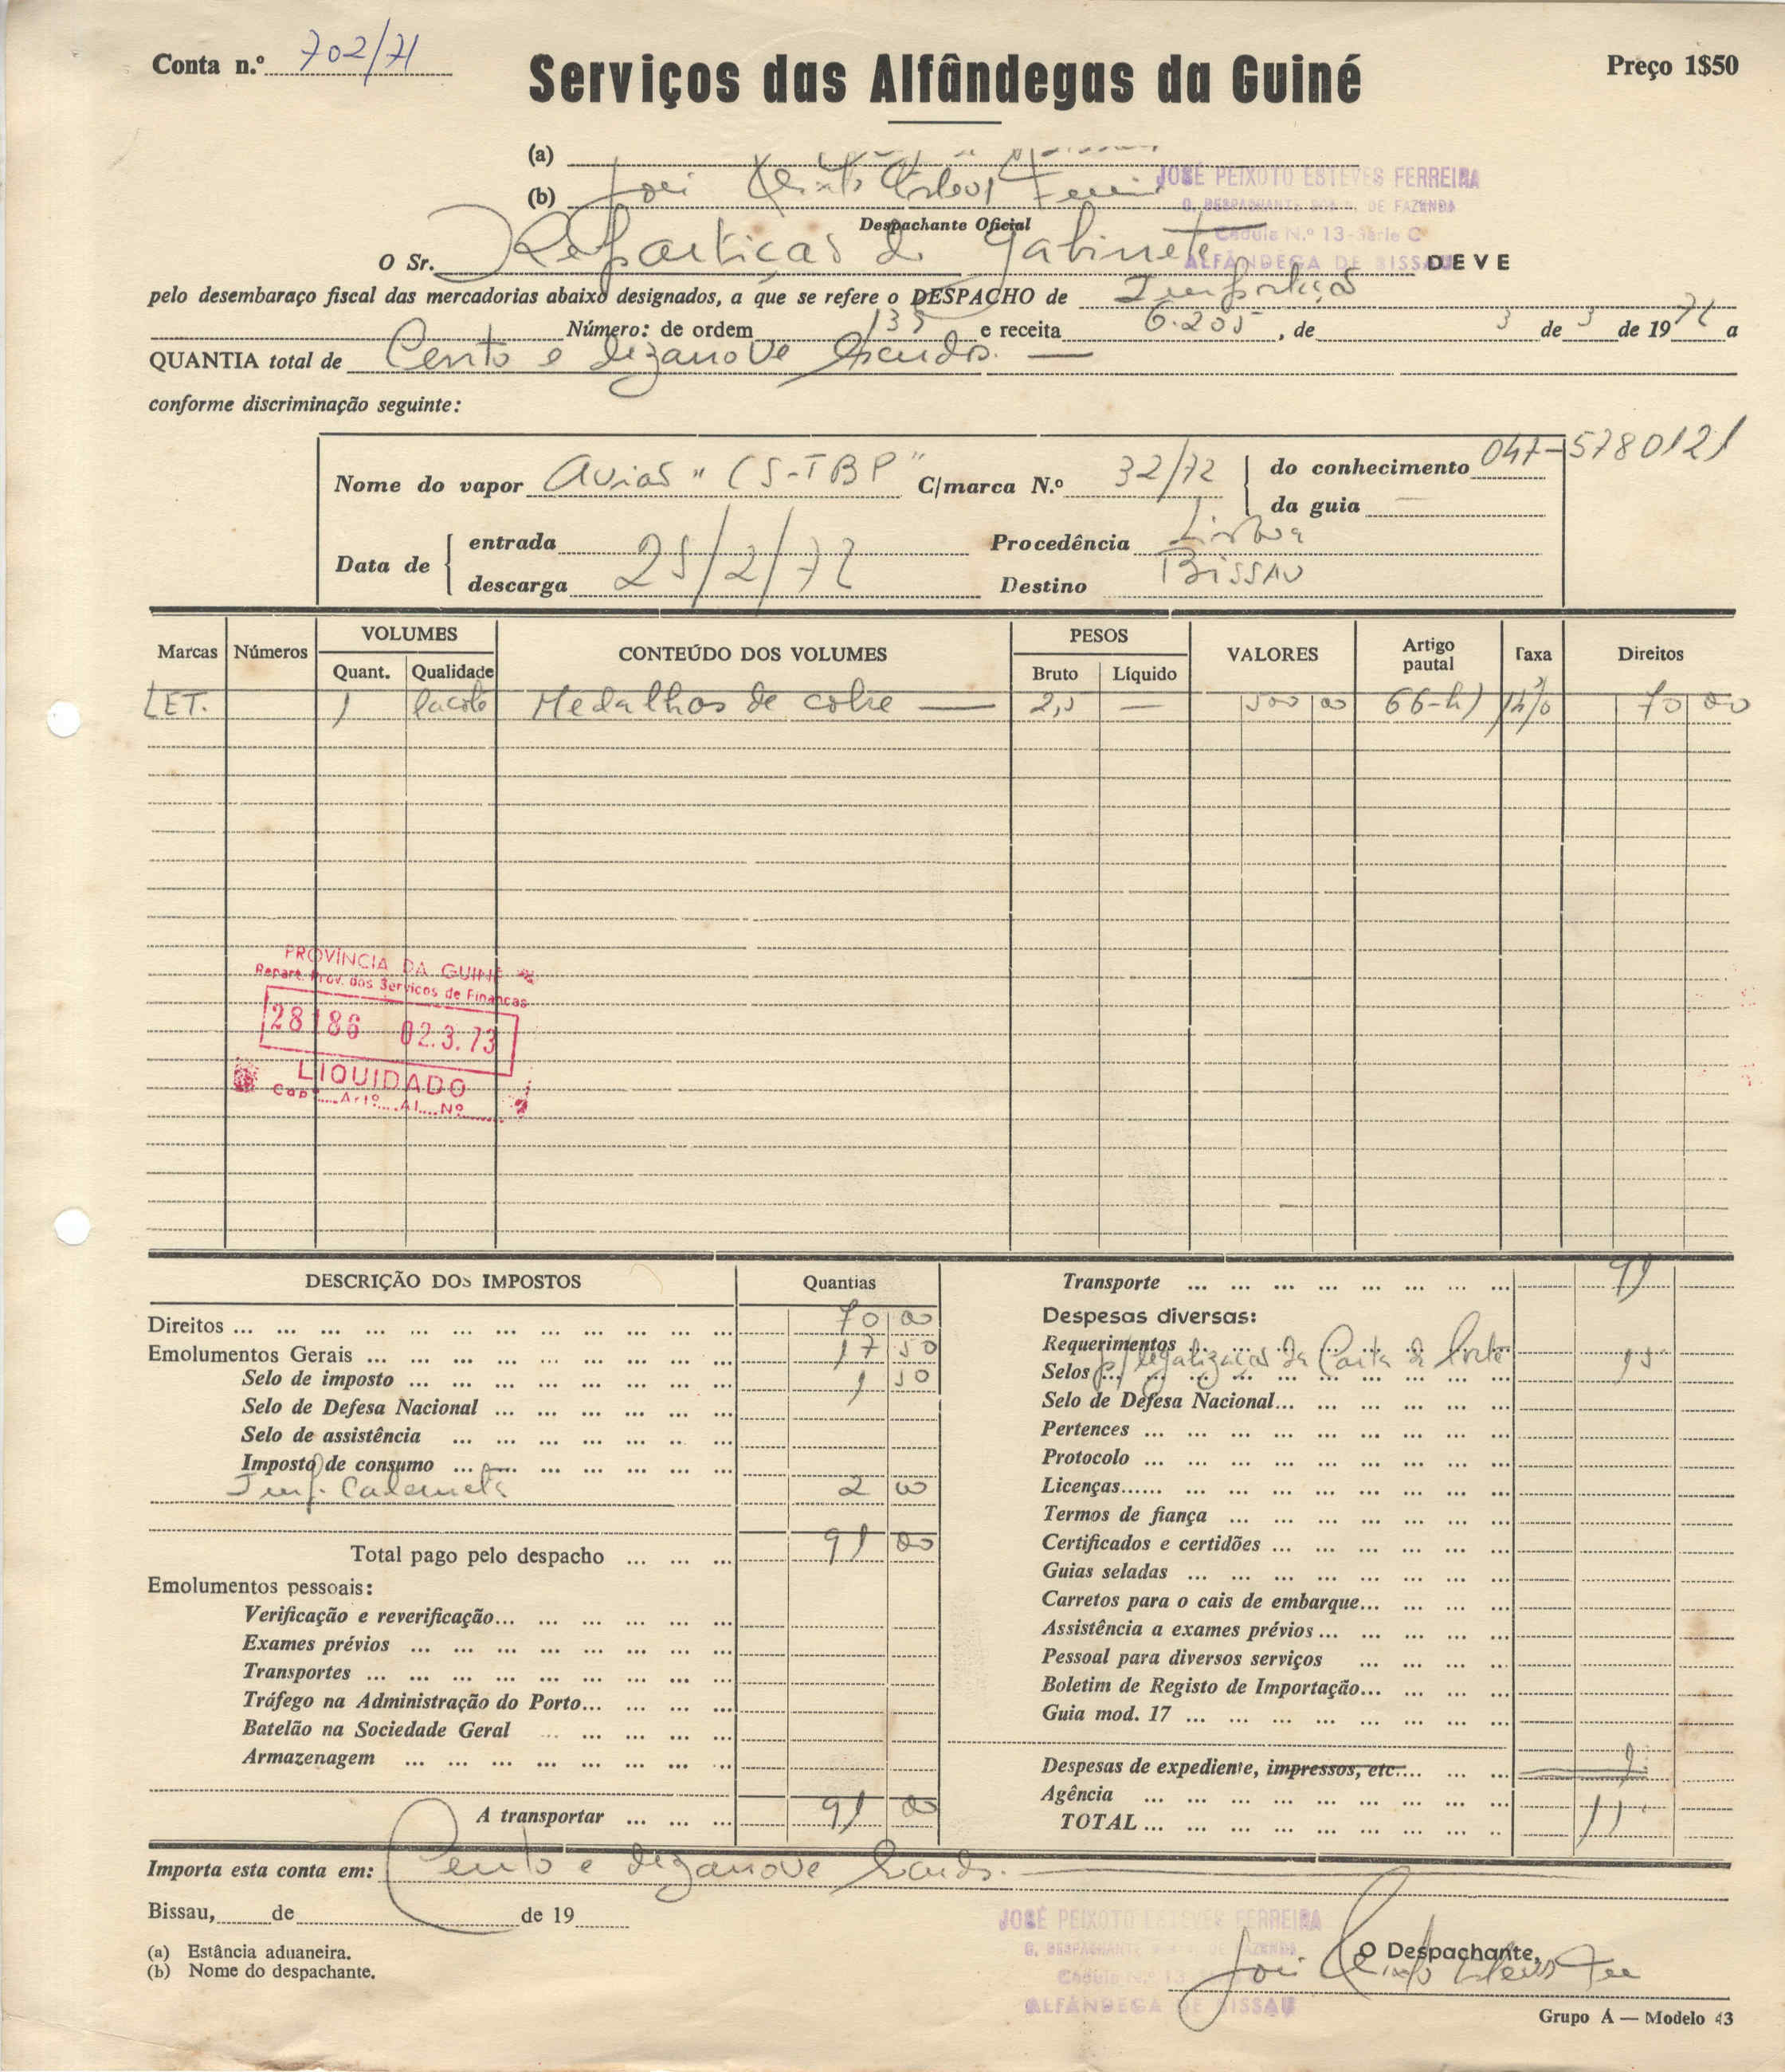 Conta n.º 702/71
Serviços das Alfândegas da Guiné
Preço 1$50
(a)
(b) José Peixoto Esteves Ferreira
JOSÉ PEIXOTO ESTEVES FERREIRA
DE FAZENDA
Despachante Oficial
Cédula N.º 13-Série C
ALFÂNDEGA DE BISSAU
O Sr. Repartição do Gabinete DEVE
pelo desembaraço fiscal das mercadorias abaixo designados, a que se refere o DESPACHO de Importação
Número: de ordem 135 e receita 6.205, de 3 de 3 de 1972 a
QUANTIA total de Cento e dezanove Escudos. —
conforme discriminação seguinte:
Nome do vapor Avião "CS-TBP" C/marca N.º 32/72 do conhecimento 047-5780121
da guia —
Data de entrada Procedência Lisboa
25/2/72
descarga Destino Bissau
Marcas Números VOLUMES CONTEÚDO DOS VOLUMES PESOS VALORES Artigo pautal Taxa Direitos
Quant. Qualidade Bruto Líquido
LET. 1 Pacote Medalhas de cobre — 2,5 — 500 00 66-h) 14% 70 00
PROVÍNCIA DA GUINÉ
Repart. Prov. dos Serviços de Finanças
28186 02.3.73
LIQUIDADO
Capº.....Artº.....Al....Nº
DESCRIÇÃO DOS IMPOSTOS Quantias
Direitos ... 70 00
Emolumentos Gerais ... 17 50
Selo de imposto ... 1 50
Selo de Defesa Nacional ...
Selo de assistência ...
Imposto de consumo ...
Imp. Calameta 2 00
Total pago pelo despacho ... 91 00
Emolumentos pessoais:
Verificação e reverificação...
Exames prévios ...
Transportes ...
Tráfego na Administração do Porto...
Batelão na Sociedade Geral ...
Armazenagem ...
A transportar ... 91 00
Transporte ... 91
Despesas diversas:
Requerimentos ...
p/ legalização da Carta de Porte 15
Selos ...
Selo de Defesa Nacional...
Pertences ...
Protocolo ...
Licenças......
Termos de fiança ...
Certificados e certidões ...
Guias seladas ...
Carretos para o cais de embarque...
Assistência a exames prévios ...
Pessoal para diversos serviços ...
Boletim de Registo de Importação...
Guia mod. 17 ...
Despesas de expediente, impressos, etc....
Agência ...
TOTAL ...
Importa esta conta em: Cento e dezanove Escudos. —
Bissau, de de 19
(a) Estância aduaneira.
(b) Nome do despachante.
JOSÉ PEIXOTO ESTEVES FERREIRA
ALFÂNDEGA DE BISSAU
O Despachante,
José Peixoto Esteves Fer
Grupo A — Modelo 43